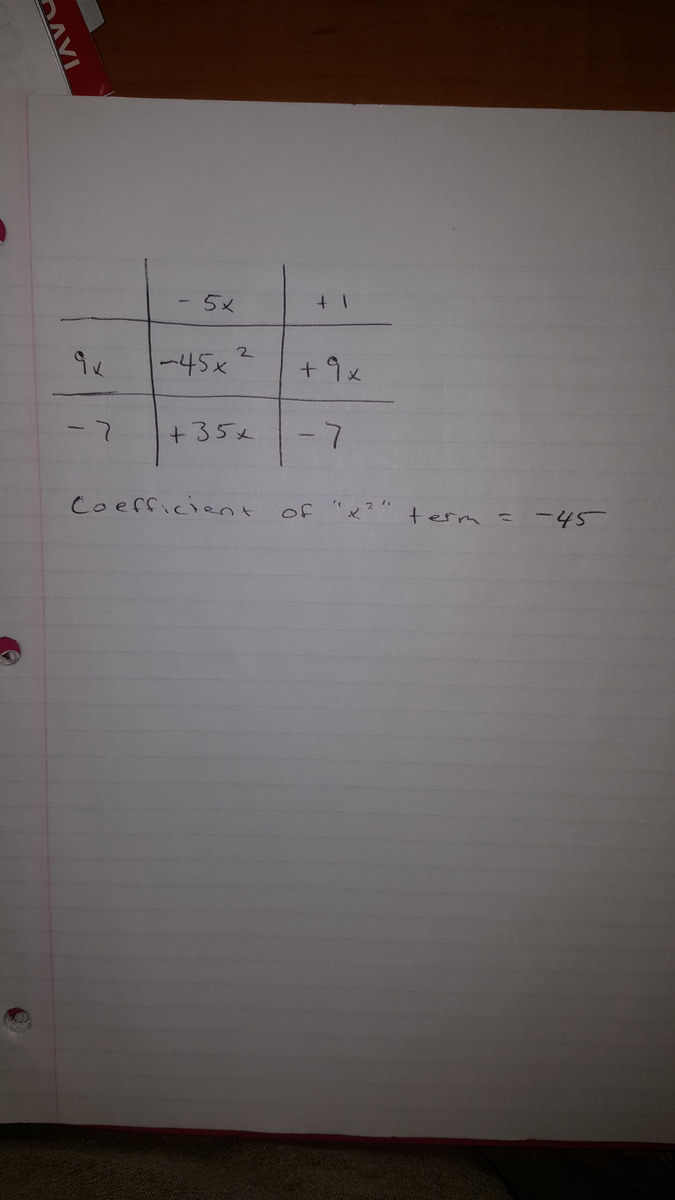 DAVI
- 5x + 1
9x -45x² + 9x
- 7 + 35x - 7
Coefficient of "x²" term = -45